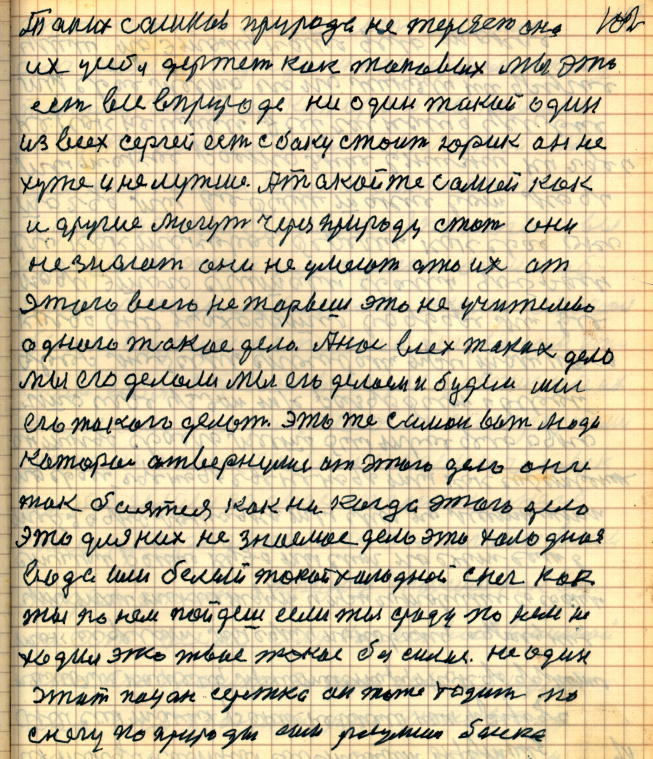 Таких самиков природа не теряет она 102
их учебу держет как таковых мы это
ест все вприроде ни один такой один
из всех сергей ест с баку стоит юрик он не
хуже и не лутше. А такойже самый как
и другие могут через природу стот они
незнают они не умеют это их от
этого всего неторвеш это не учительво
одного такое дело. А нас всех таких дело
мы его делали мы его делаем и будем мы
его такого делат. это же самое вот люди
которые отвернулис от этого дело они
так боятся как ни когда этого дело
это для них не знаемое дело это холодная
вода или белый такой холодной снег как
ты по нем пойдеш если ты сроду по нем не
ходил это твое такое бы силие. не один
этот пацан сережка он тоже ходит по
снегу по природы или